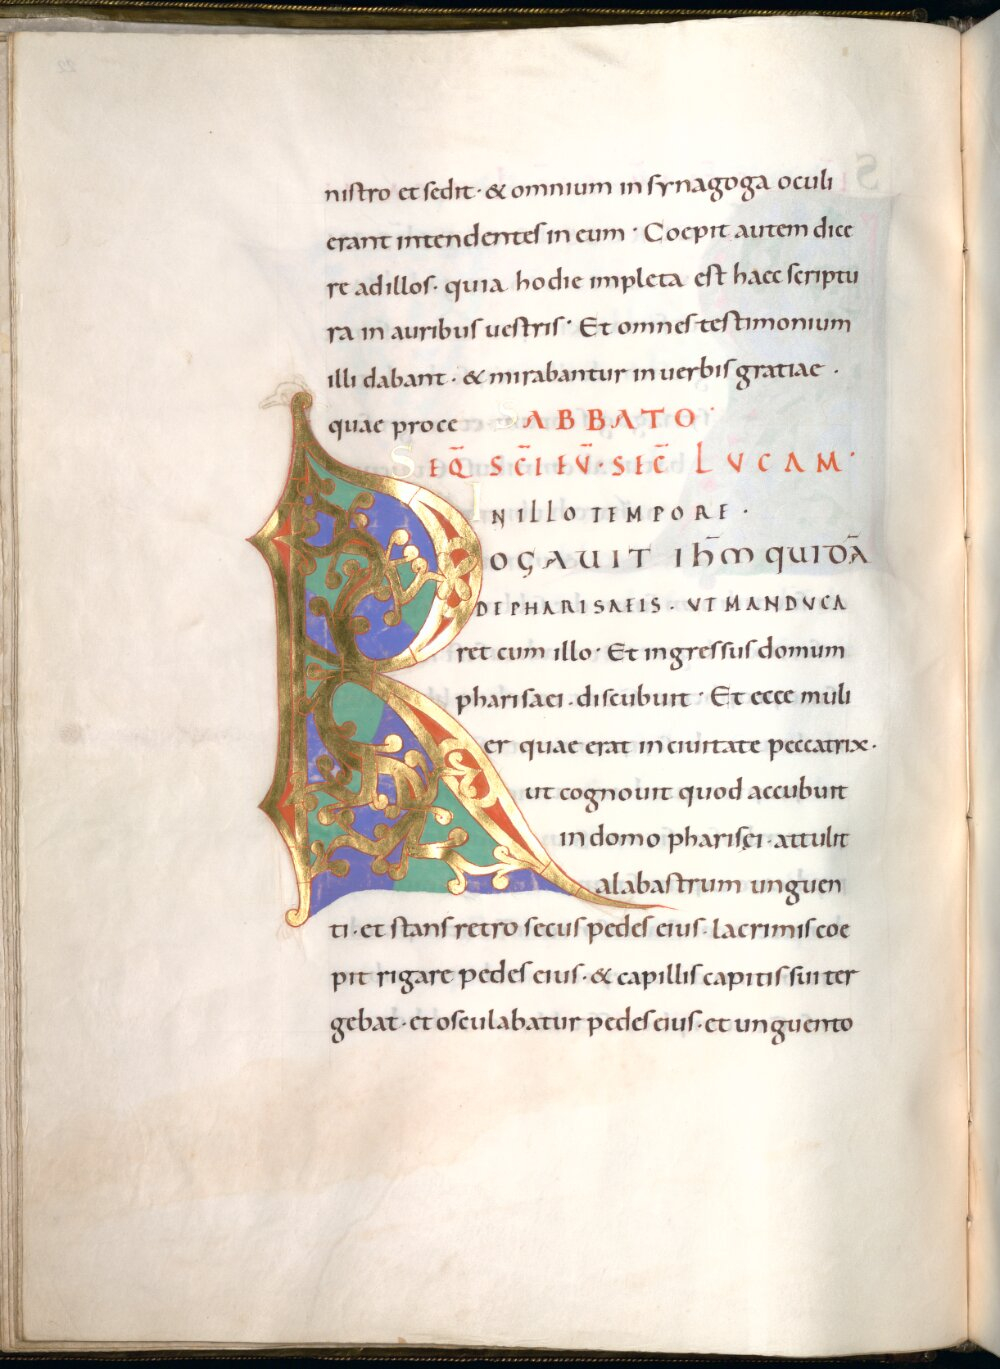 nistro et sedit· & omnium in synagoga oculi
erant intendentes in eum· Coepit autem dice
re ad illos· quia hodie impleta est haec scriptu
ra in auribus uestris· Et omnes testimonium
illi dabant· & mirabantur in uerbis gratiae·
quae proce SABBATO·
SEQ̄ SC̄I EŪ· SEC̄ LVCAM·
IN ILLO TEMPORE·
ROGAUIT IHM̄ QUIDĀ
DE PHARISAEIS· VT MANDVCA
ret cum illo· Et ingressus domum
pharisaei· discubuit· Et ecce muli
er quae erat in ciuitate peccatrix·
ut cognouit quod accubuit
in domo pharisęi· attulit
alabastrum unguen
ti· et stans retro secus pedes eius· lacrimis coe
pit rigare pedes eius· & capillis capitis sui ter
gebat· et osculabatur pedes eius· et unguento